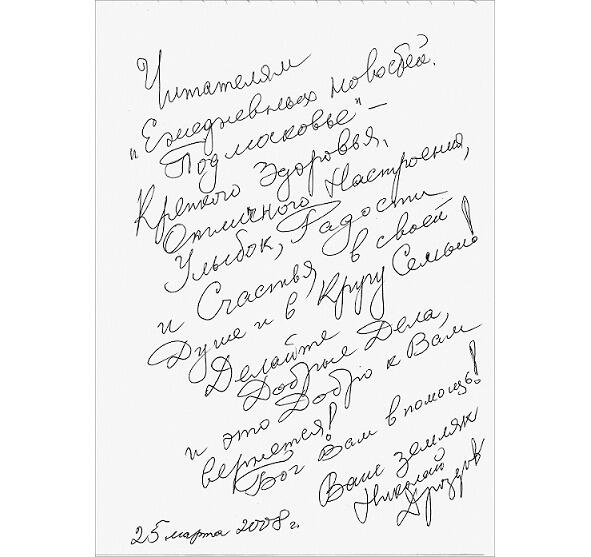 Читателям
"Ежедневных Новостей.
Подмосковье" –
Крепкого Здоровья,
Отличного Настроения,
Улыбок, Радости
и Счастья в своей
Душе и в Кругу Семьи!
Делайте
Добрые Дела,
и это Добро к Вам
вернется!
Бог Вам в помощь!
Ваш земляк
Николай
Дроздов
25 марта 2008 г.